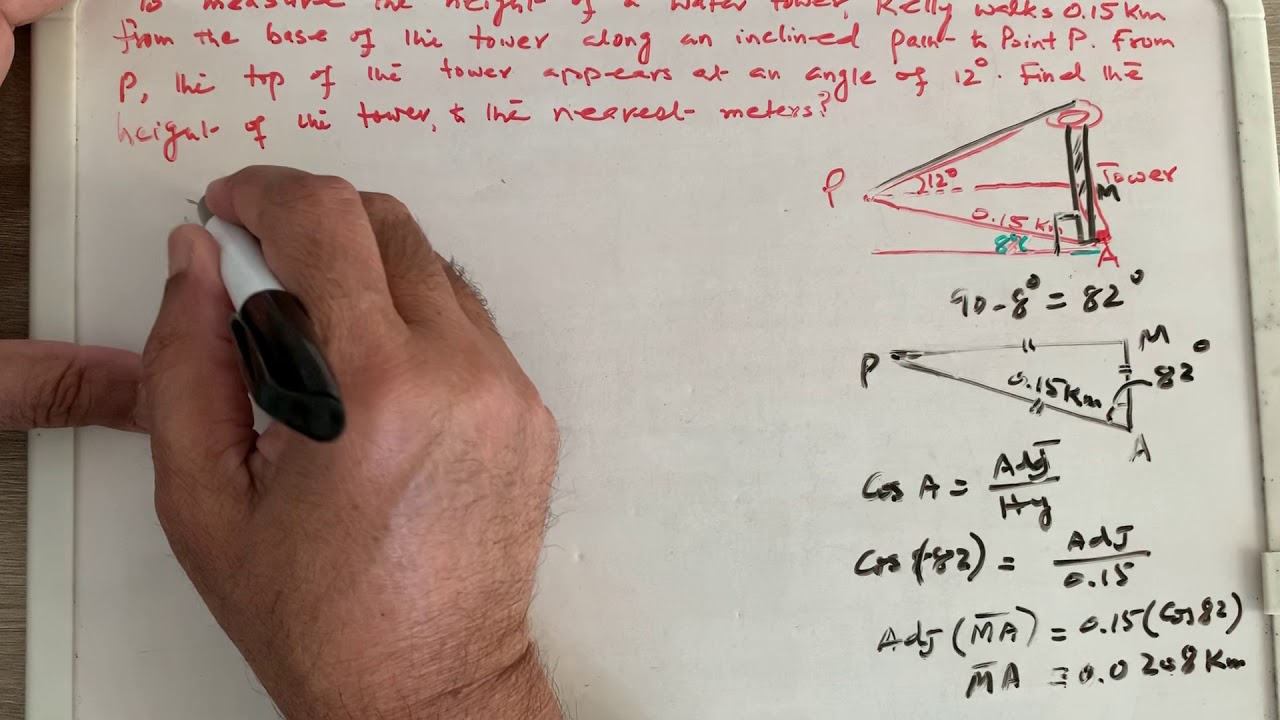 To measure the height of a water tower, Kelly walks 0.15 Km
from the base of the tower along an inclined path to Point P. From
P, the top of the tower appears at an angle of 12°. Find the
height of the tower, to the nearest meters?
P
12°
Tower
M
0.15 Km
8°
A
90-8° = 82°
P
M
82°
0.15 Km
A
Cos A = Adj / Hy
Cos(82) = Adj / 0.15
Adj (MA) = 0.15 (Cos 82)
MA = 0.0208 Km